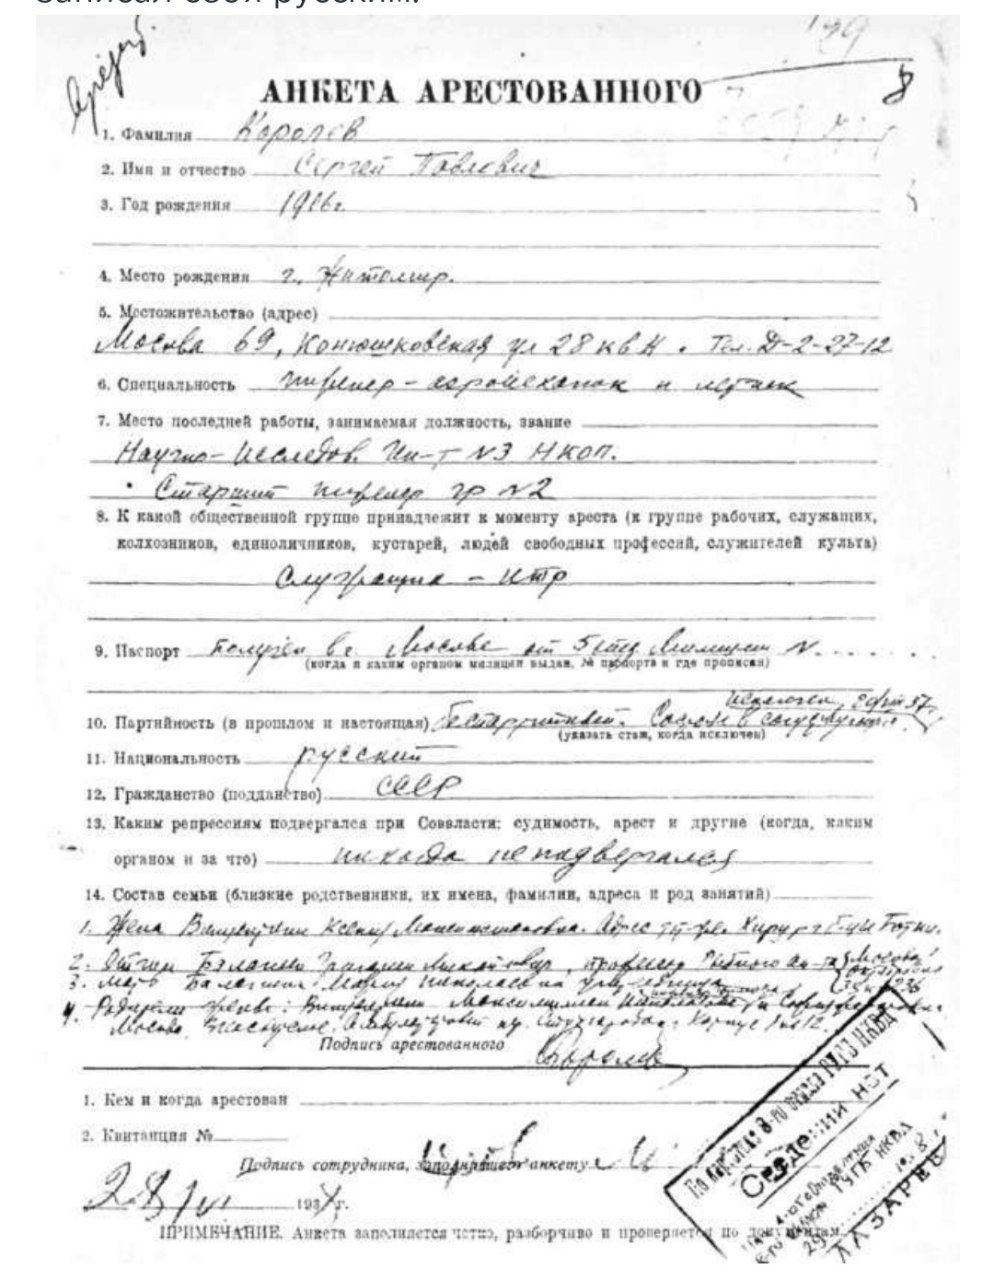 записал себя русским.
АНКЕТА АРЕСТОВАННОГО
1. Фамилия Королев
2. Имя и отчество Сергей Павлович
3. Год рождения 1906г.
4. Место рождения г. Житомир.
5. Местожительство (адрес)
Москва 69, Конюшковская ул 28 кв 11. Тел. Д-2-27-12
6. Специальность инженер - аэромеханик и летчик
7. Место последней работы, занимаемая должность, звание
Научно-Исследов. Ин-т №3 НКОП.
Старший инженер гр №2
8. К какой общественной группе принадлежит к моменту ареста (к группе рабочих, служащих,
колхозников, единоличников, кустарей, людей свободных профессий, служителей культа)
Служащих - ИТР
9. Паспорт получен в г. Москве от 5 отд. Милиции N
(когда и каким органом милиции выдан, № паспорта и где прописан)
10. Партийность (в прошлом и настоящая) беспартийный. Состоял в сочувствующих
(указать стаж, когда исключен)
11. Национальность русский
12. Гражданство (подданство) СССР
13. Каким репрессиям подвергался при Соввласти: судимость, арест и другие (когда, каким
органом и за что) никогда не подвергался
14. Состав семьи (близкие родственники, их имена, фамилии, адреса и род занятий)
1. Жена Винцентини Ксения Максимилиановна. Адрес
2. Отчим Баланин Григорий Михайлович, профессор
3. Мать Баланина Мария Николаевна
4. Родители жены: Винцентини Максимилиан
Москва
Подпись арестованного Королев
1. Кем и когда арестован
2. Квитанция №
Подпись сотрудника, заполнившего анкету
28/VI 1938г.
ПРИМЕЧАНИЕ. Анкета заполняется четко, разборчиво и проверяется по документам.
СВЕДЕНИЙ НЕТ
ГУГБ НКВД
ЛАЗАРЕВ